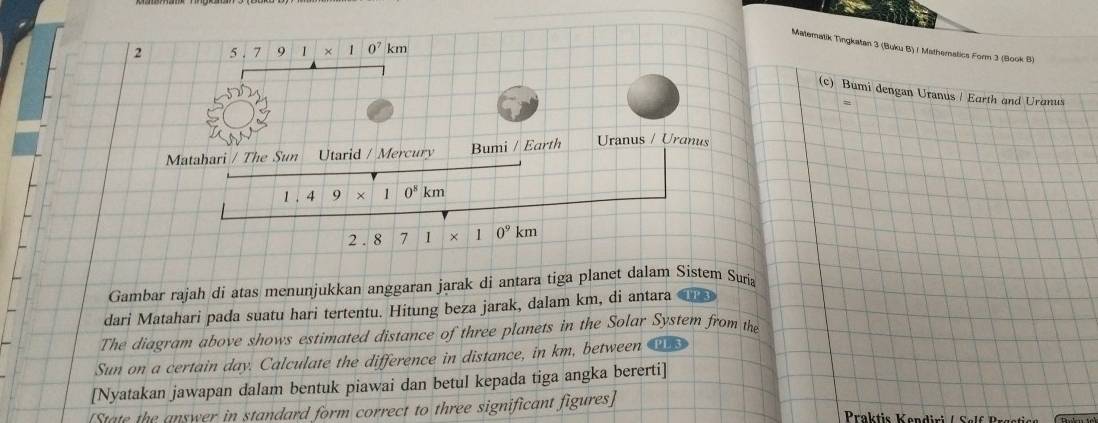 Matematik Tingkatan 3 (Buku B) / Mathematics Form 3 (Book B)
2
5.791 × 10⁷ km
Matahari / The Sun Utarid / Mercury Bumi / Earth Uranus / Uranus
1.49 × 10⁸ km
2.871 × 10⁹ km
Gambar rajah di atas menunjukkan anggaran jarak di antara tiga planet dalam Sistem Suria
dari Matahari pada suatu hari tertentu. Hitung beza jarak, dalam km, di antara TP 3
The diagram above shows estimated distance of three planets in the Solar System from the
Sun on a certain day. Calculate the difference in distance, in km, between PL 3
[Nyatakan jawapan dalam bentuk piawai dan betul kepada tiga angka bererti]
[State the answer in standard form correct to three significant figures]
(c) Bumi dengan Uranus / Earth and Uranus
=
Praktis Kendiri / Self Practice